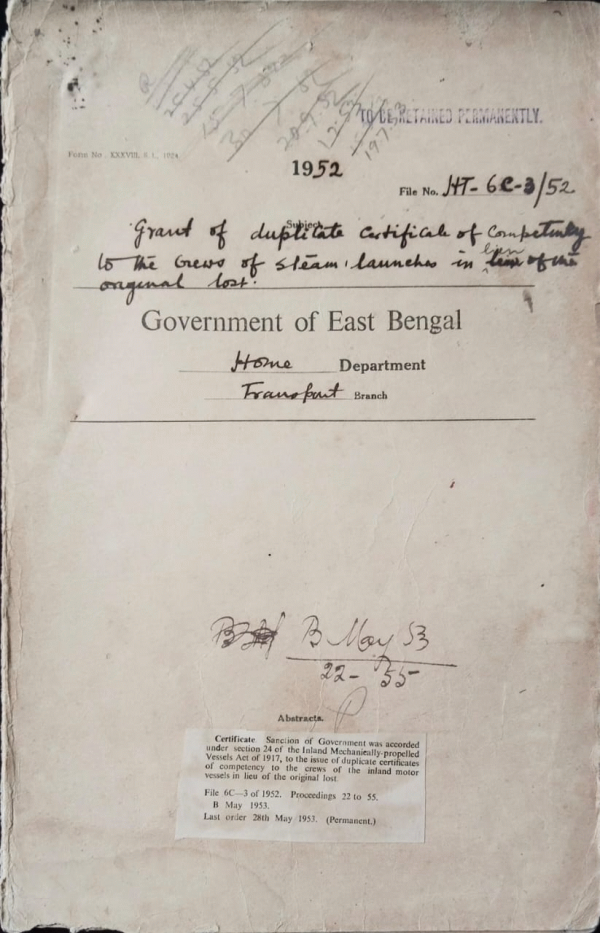 TO BE RETAINED PERMANENTLY.
Form No. XXXVIII.
1952
File No. HT-6C-3/52
Subject
Grant of duplicate Certificate of Competency
to the Crews of steam launches in lieu of the
original lost.
Government of East Bengal
Home Department
Transport Branch
B May 53
22-55
Abstracts.
Certificate Sanction of Government was accorded
under section 24 of the Inland Mechanically-propelled
Vessels Act of 1917, to the issue of duplicate certificates
of competency to the crews of the inland motor
vessels in lieu of the original lost.
File 6C—3 of 1952. Proceedings 22 to 55.
B May 1953.
Last order 28th May 1953. (Permanent.)